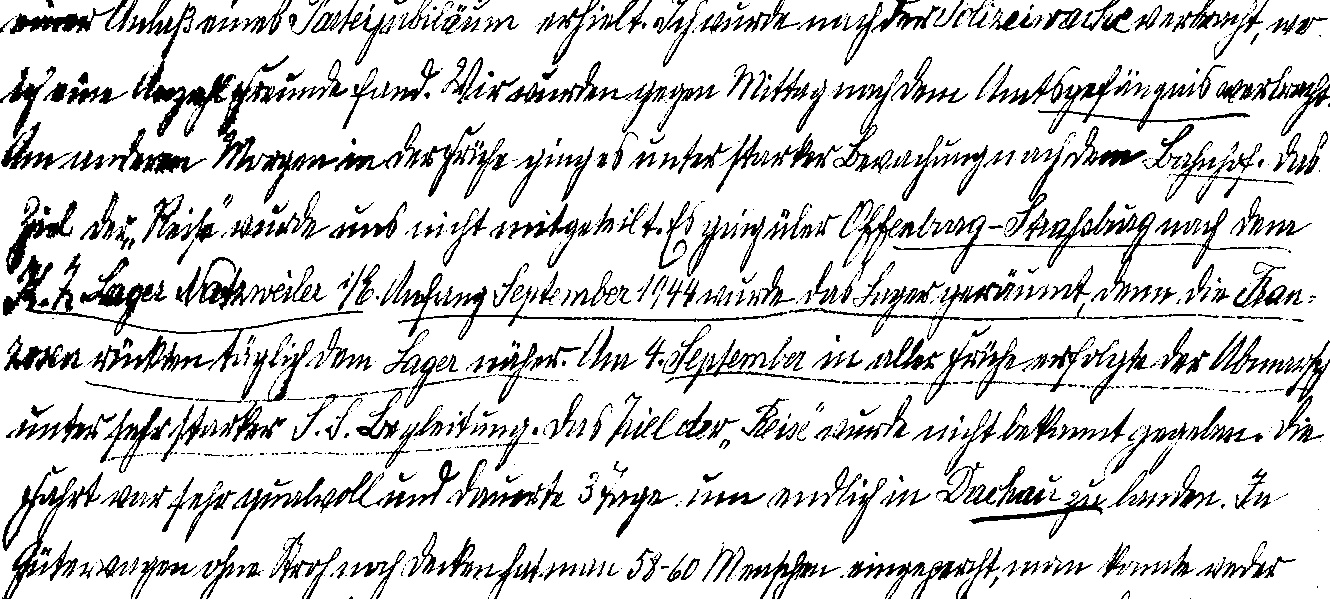 einer Anlaß eines Parteijubiläum erhielt. Ich wurde nach der Polizeiwache verbracht, wo
ich eine Anzahl Freunde fand. Wir wurden gegen Mittag nach dem Amtsgefängnis verbracht.
Am anderen Morgen in der Frühe ging es unter starker Bewachung nach dem Bahnhof. Das
Ziel der „Reise" wurde uns nicht mitgeteilt. Es ging über Offenburg - Straßburg nach dem
K. Z. Lager Natzweiler i/E. Anfang September 1944 wurde das Lager geräumt, denn die Fran-
zosen rückten täglich dem Lager näher. Am 4. September in aller Frühe erfolgte der Abmarsch
unter sehr starker S.S. Begleitung. Das Ziell der „Reise" wurde nicht bekannt gegeben. Die
Fahrt war sehr qualvoll und dauerte 3 Tage um endlich in Dachau zu landen. In
Güterwagen ohne Stroh noch Decken hat man 58-60 Menschen eingepercht, man konnte weder